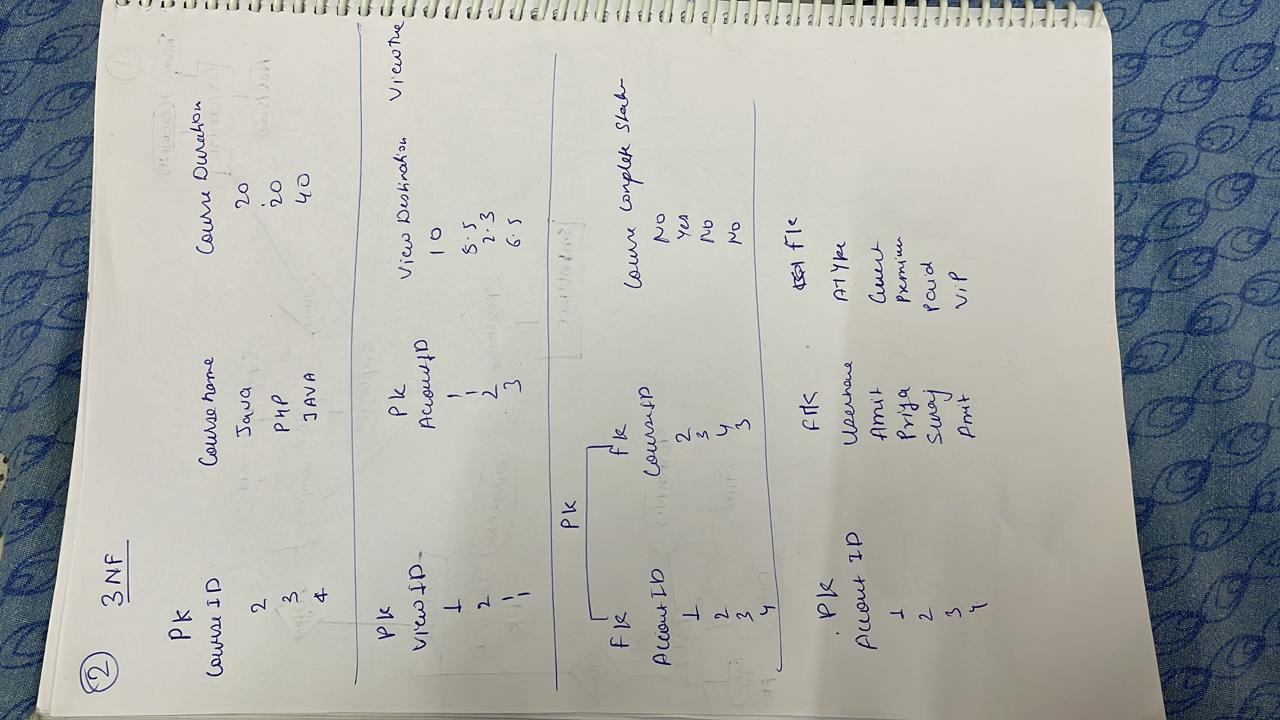 2 3NF
PK
Course ID Coursename Course Duration
2 Java 20
3 PHP 20
4 JAVA 40
PK PK
View ID Account ID View Destination
1 1 10
2 1 5.5
1 2 2.3
1 3 6.5
PK
FK FK
Account ID Course ID Course Complete
1 2 No
2 3 Yes
3 4 No
4 3 No
PK FK FK
Account ID Username AType
1 Amit
2 Priya Premium
3 Suraj Paid
4 Amit ViP